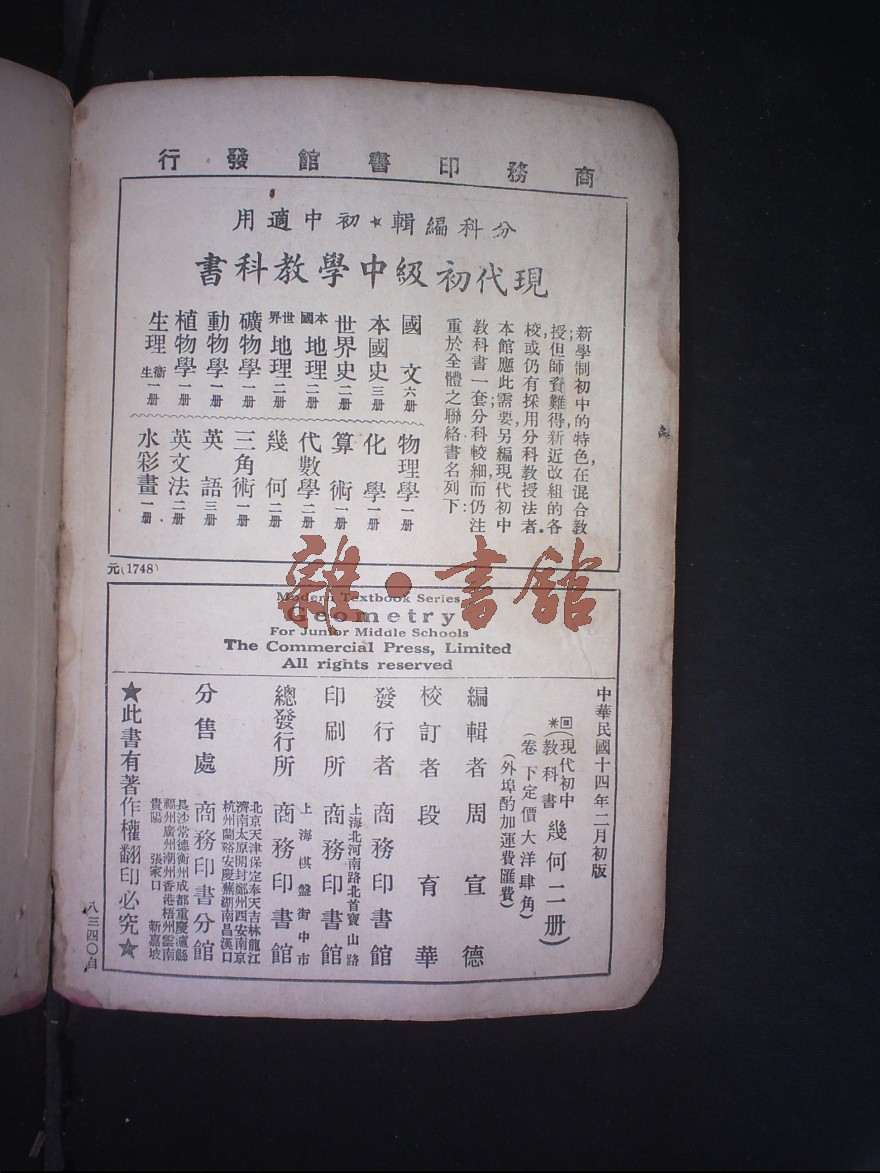 商務印書館發行
分科編輯★初中適用
現代初級中學教科書
新學制初中的特色，在混合教
授；但師資難得，新近改組的各
校，或仍有採用分科教授法者。
本館應此需要，另編現代初中
教科書一套，分科較細，而仍注
重於全體之聯絡。書名列下：
國文 六册
本國史 三册
世界史 二册
本國地理 二册
世界地理 二册
礦物學 一册
動物學 一册
植物學 一册
生理衞生 一册
物理學 一册
化學 一册
算術 一册
代數學 二册
幾何 二册
三角術 一册
英語 三册
英文法 二册
水彩畫 一册
元(1748)
雜·書館
Modern Textbook Series
Geometry
For Junior Middle Schools
The Commercial Press, Limited
All rights reserved
中華民國十四年二月初版
(現代初中教科書 幾何二册)
(卷下定價大洋肆角)
(外埠酌加運費匯費)
編輯者 周宣德
校訂者 段育華
發行者 商務印書館
上海北河南路北首寶山路
印刷所 商務印書館
上海棋盤街中市
總發行所 商務印書館
北京天津保定奉天吉林龍江
濟南太原開封鄭州西安南京
杭州蘭谿安慶蕪湖南昌漢口
分售處 商務印書分館
長沙常德衡州成都重慶瀘縣
福州廣州潮州香港梧州雲南
貴陽 張家口 新嘉坡
★此書有著作權翻印必究★
八三四〇自